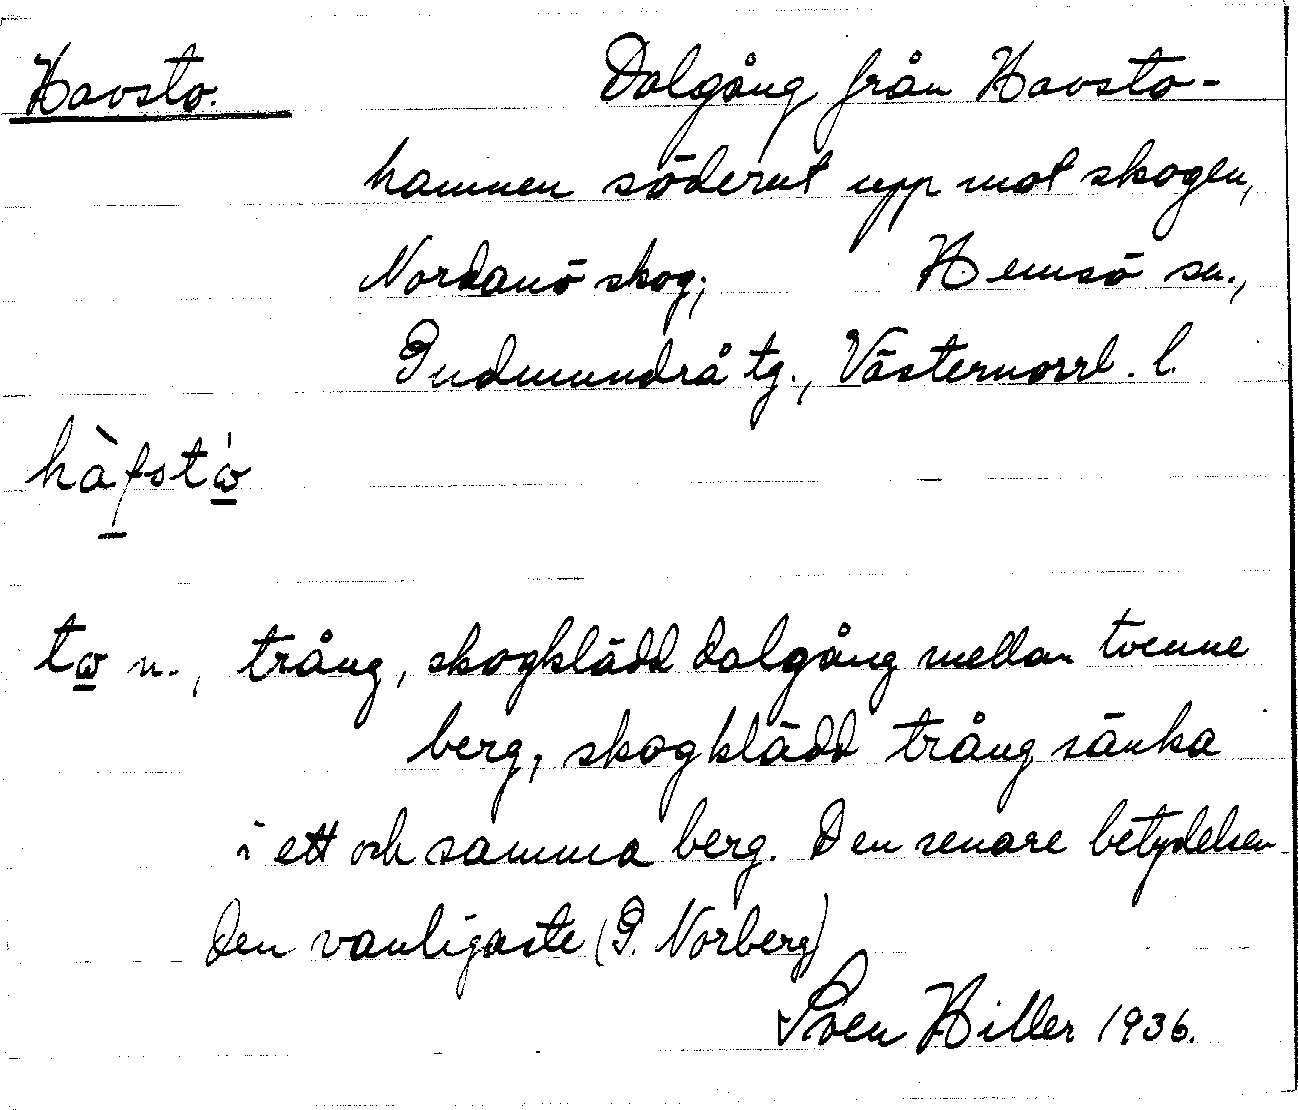 Havsto. Dalgång från Havsto-
hamnen söderut upp mot skogen,
Nordanö skog; Hemsö sn.,
Gudmundrå tg., Västernorrl. l.
hàfstω̇
tω n., trång, skogklädd dalgång mellan tvenne
berg, skogklädd trång sänka
i ett och samma berg. Den senare betydelsen
den vanligaste (P. Norberg)
Sven Hiller 1936.